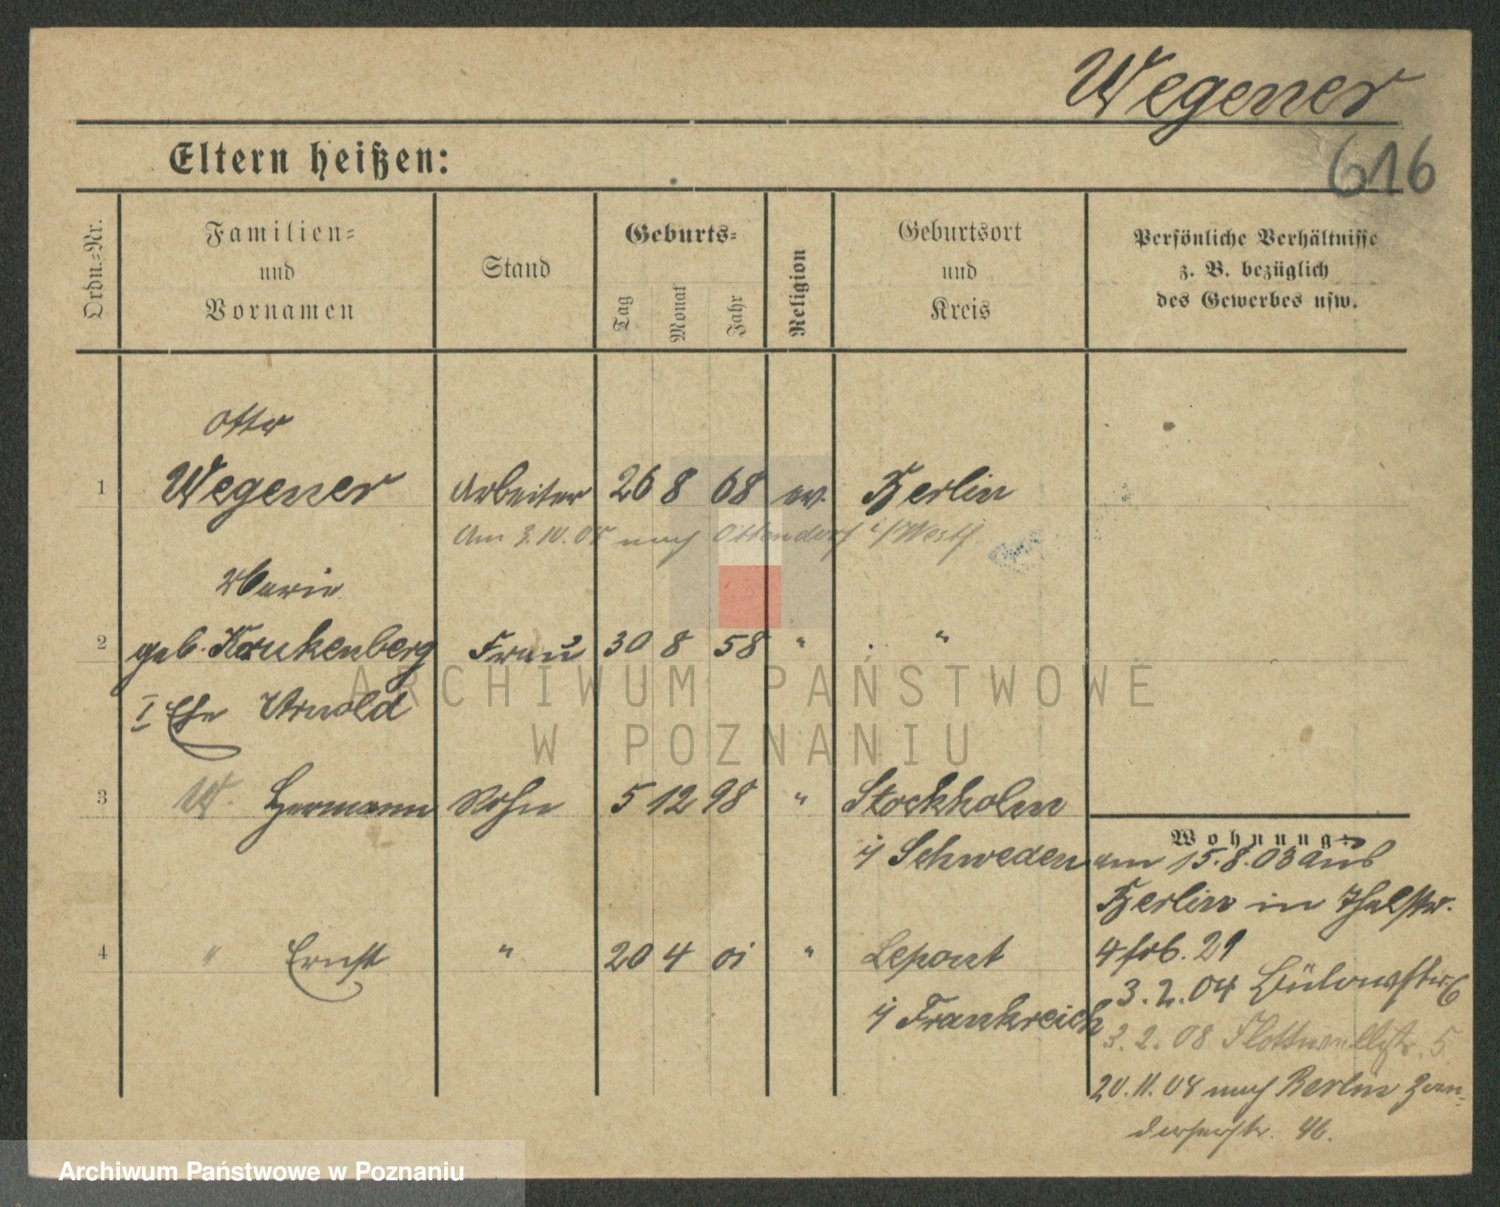 Wegener
616
Eltern heißen:
Ordn.-Nr.
Familien-
und
Vornamen
Stand
Geburts-
Tag
Monat
Jahr
Religion
Geburtsort
und
Kreis
Persönliche Verhältnisse
z. B. bezüglich
des Gewerbes usw.
Otto
1 Wegener Arbeiter 26 8 68 ev. Berlin
Am 3.10.05 nach Ottendorf i/Westf
Marie
2 geb. Krukenberg Frau 30 8 58 " "
I Ehe Arnold
3 W. Hermann Sohn 5 12 98 " Stockholm
i/ Schweden
4 " Ernst " 20 4 01 " Lepont
i/ Frankreich
Wohnung:
am 15.8.03 aus
Berlin in Thalstr.
4 29
3.2.04 Bülowstr. 6
3.2.08 Flottwellstr. 5
20.11.08 nach Berlin
46.
ARCHIWUM PAŃSTWOWE
W POZNANIU
Archiwum Państwowe w Poznaniu